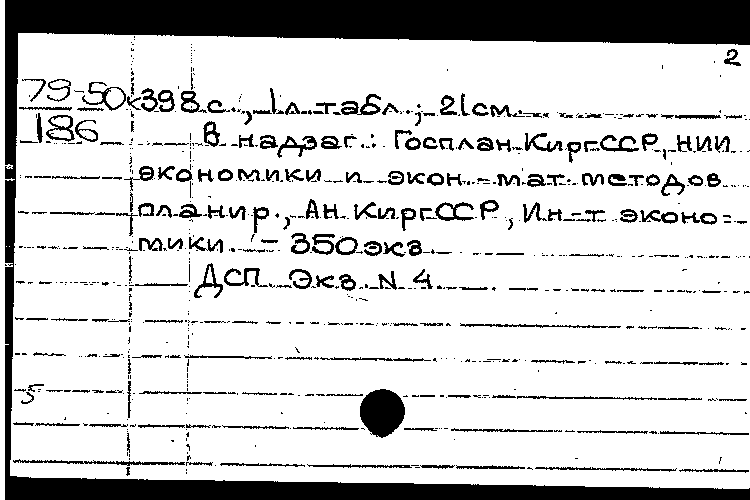 2
79-50к 398 с., 1 л. табл.; 21 см.
186 В надзаг.: Госплан КиргССР, НИИ
экономики и экон.-мат. методов
планир., АН КиргССР, Ин-т эконо=
мики. - 350 экз.
ДСП. Экз. N 4.
5